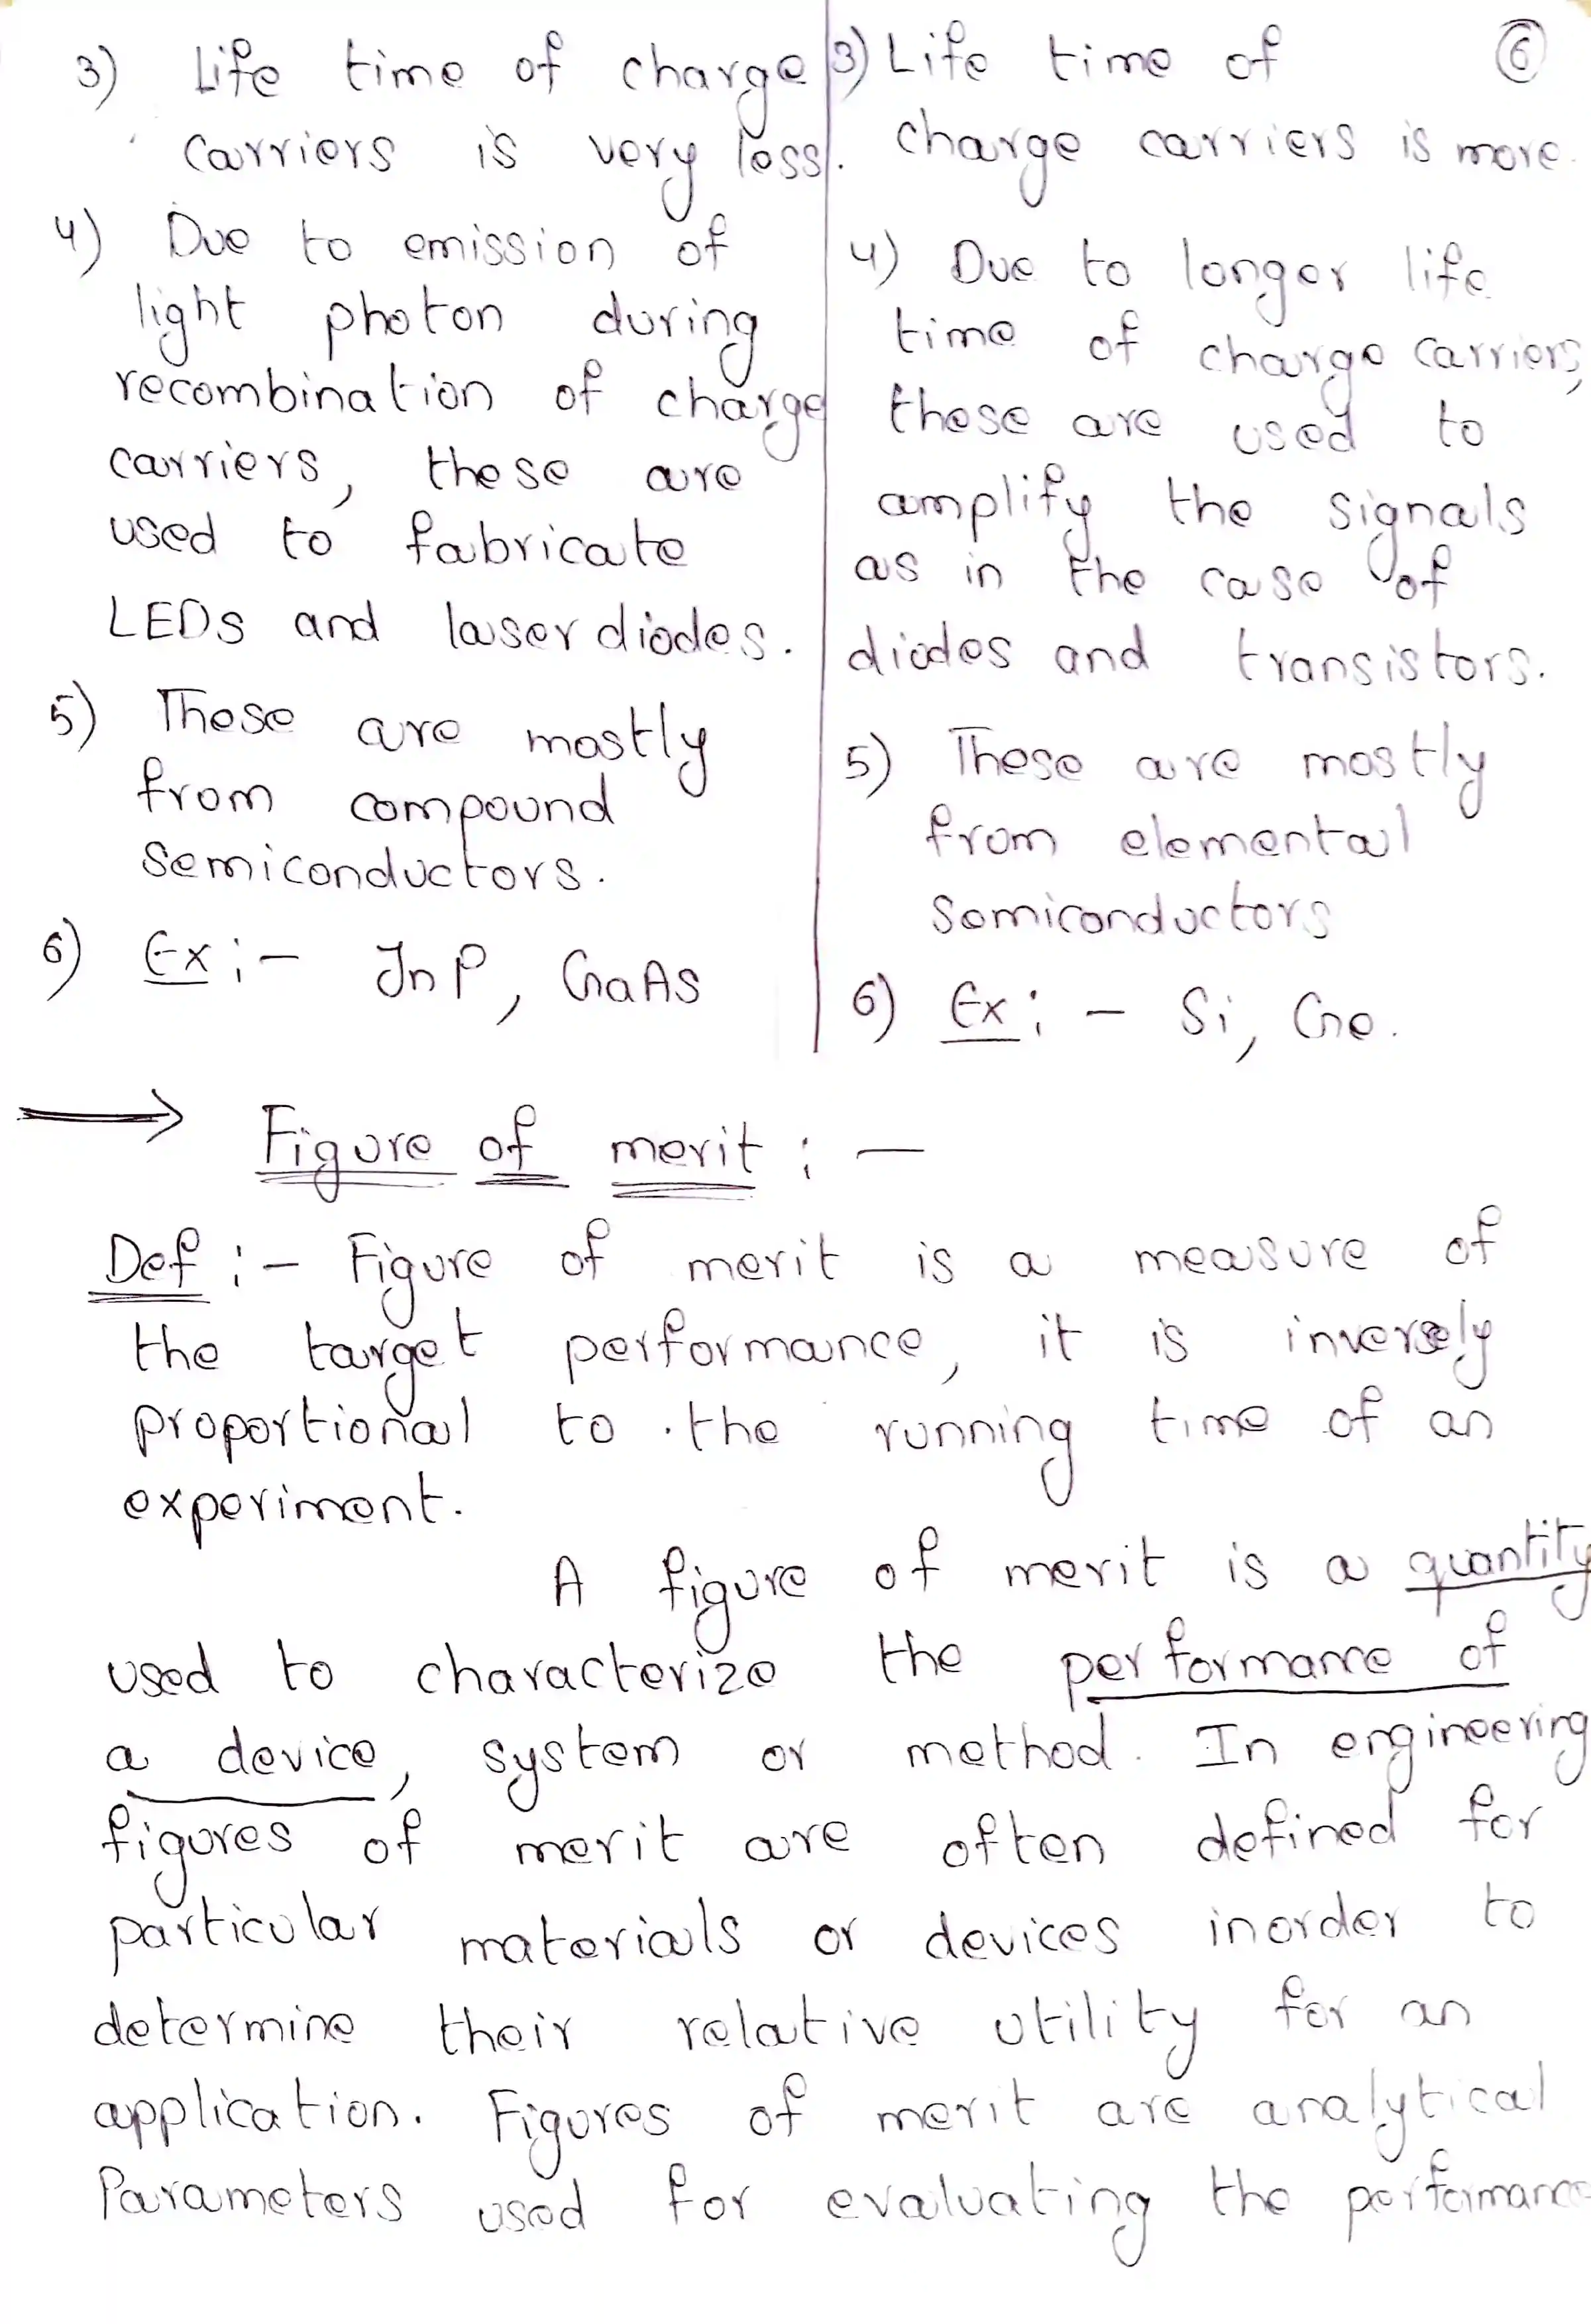 3) Life time of charge
carriers is very less.
4) Due to emission of
light photon during
recombination of charge
carriers, these are
used to fabricate
LEDs and laser diodes.
5) These are mostly
from compound
semiconductors.
6) Ex :- InP, GaAs
6
3) Life time of
charge carriers is more.
4) Due to longer life
time of charge carriers,
these are used to
amplify the signals
as in the case of
diodes and transistors.
5) These are mostly
from elemental
Semiconductors
6) Ex : - Si, Ge.
⟶ Figure of merit : -
Def :- Figure of merit is a measure of
the target performance, it is inversely
proportional to the running time of an
experiment.
A figure of merit is a quantity
used to characterize the performance of
a device, system or method. In engineering
figures of merit are often defined for
particular materials or devices inorder to
determine their relative utility for an
application. Figures of merit are analytical
Parameters used for evaluating the performance